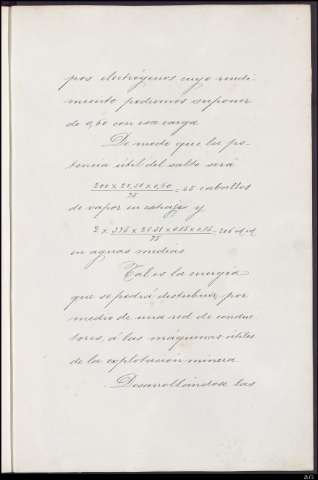 pos electrógenos, cuyo rendi-
miento podremos suponer
de 0,60 con esa carga.
De modo que la po-
tencia útil del salto será
= 45 caballos
de vapor en estiaje y
75
en aguas medias.
Tal es la energía
que se podrá distribuir por
medio de una red de conduc-
tores, á las máquinas útiles
de la explotación minera.
Desarrollándose las